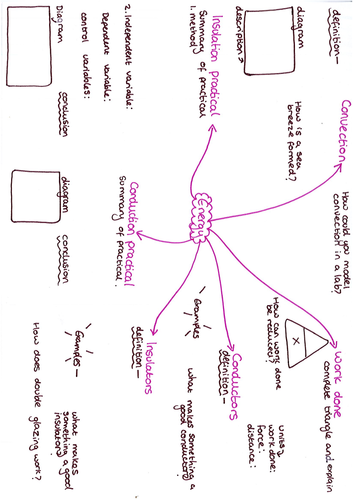 Energy
Convection
definition -
diagram
description →
How is a sea
breeze formed?
How could you model
convection in a lab?
Work done
complete triangle and explain
X
How can work done
be reduced?
units
work done:
force:
distance:
Conductors
definition -
Examples
what makes something a
good conductor?
Insulators
definition -
Examples -
what makes
something a good
insulator?
How does double
glazing work?
Conduction practical
Summary of practical.
diagram
conclusion
Insulation practical
Summary of practical
1. method
2. Independent variable:
Dependent variable:
control variables:
Diagram
conclusion